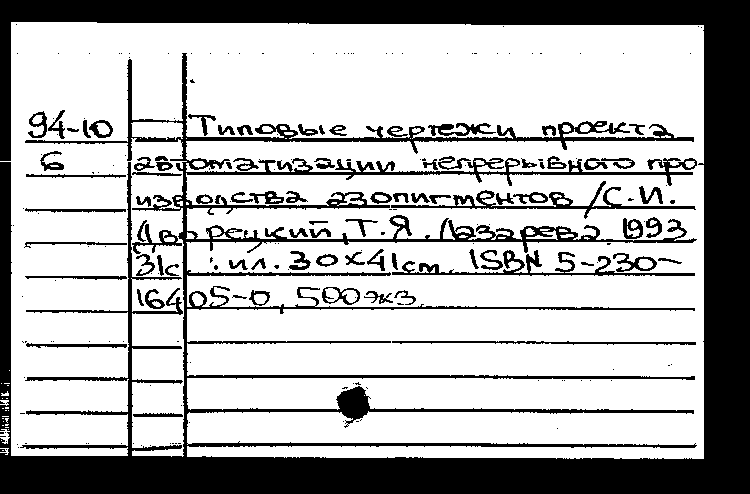 94-10 Типовые чертежи проекта
6 автоматизации непрерывного про-
изводства азопигментов /С.И.
Дворецкий, Т.Я. Лазарева. 1993
31с. : ил. 30×41см. ISBN 5-230-
16405-0, 500экз.